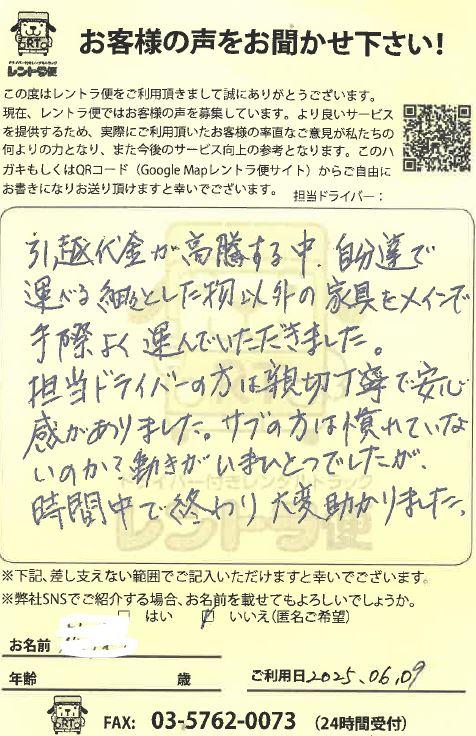 お客様の声をお聞かせ下さい!
RT
ドライバー付きレンタルトラック
レントラ便
この度はレントラ便をご利用頂きまして誠にありがとうございます。
現在、レントラ便ではお客様の声を募集しています。より良いサービス
を提供するため、実際にご利用頂いたお客様の率直なご意見が私たちの
何よりの力となり、また今後のサービス向上の参考となります。このハ
ガキもしくはQRコード（Google Mapレントラ便サイト）からご自由に
お書きになりお送り頂けますと幸いでございます。
担当ドライバー：
引越代金が高騰する中、自分達で
運べる細々とした物以外の家具をメインで
手際よく運んでいただきました。
担当ドライバーの方は親切丁寧で安心
感がありました。サブの方は慣れていな
いのか?動きがいまひとつでしたが、
時間中で終わり大変助かりました。
ドライバー付きレンタルトラック
レントラ便
※下記、差し支えない範囲でご記入いただけますと幸いでございます。
※弊社SNSでご紹介する場合、お名前を載せてもよろしいでしょうか。
はい いいえ(匿名ご希望)
お名前
年齢 歳 ご利用日 2025.06.09
RT
FAX: 03-5762-0073 （24時間受付）